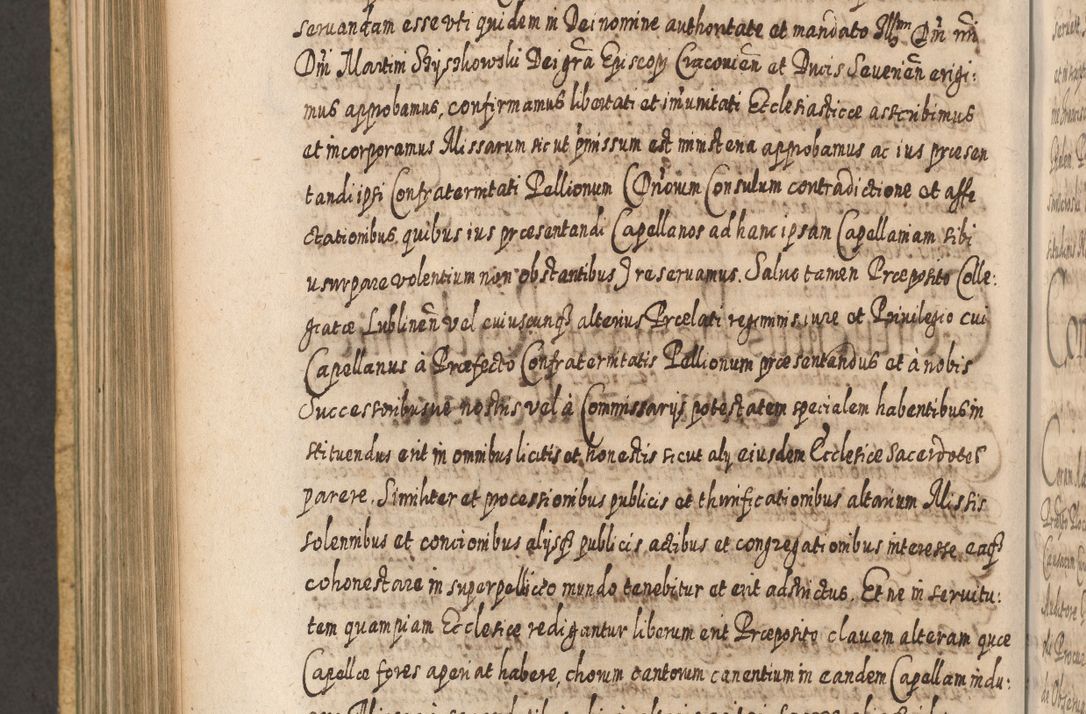 servandam esse uti quidem in Dei nomine authoritate et mandato Illmi Dñi nri
Dñi Martini Szyszkowski Dei grã Episcopi Cracovien̄ et Ducis Severien̄ erigi:
mus approbamus, confirmamus libertati et im̃unitati Ecclesiasticæ asscribimus
et incorporamus Missarum sicut p̃missum est ministeria approbamus ac ius præsen
tandi ipsi Confraternitati Pellionum (Dñorum Consulum contradictione et affe
ctationibus, quibus ius præsentandi Capellanos ad hanc ipsam Capellaniam sibi
usurpare volentium non obstantibus) reservamus. Salvo tamen Præposito Colle:
giatæ Lublinen̄ vel cuiuscunq3 alterius Prælati regiminis iure et Privilegio cui
Capellanus à Præfecto Confraternitatis Pellionum præsentandus et à nobis
Successoribusve nostris vel à Commissarijs potestatem specialem habentibus in
stituendus erit in omnibus licitis et honestis sicut alij eiusdem Ecclesiæ Sacerdotes
parere. Similiter et processionibus publicis et thurificationibus altarium Missis
solennibus et concionibus alijsq3 publicis actibus et congregationibus interesse eaq3
cohonestare in superpelliceo mundo tenebitur et erit adstrictus. Et ne in servitu:
tem quampiam Ecclesiæ redigantur liberum erit Præposito clavem alteram quæ
Capellæ fores aperiat habere, chorum cantorum canentium in eandem Capellam indu: